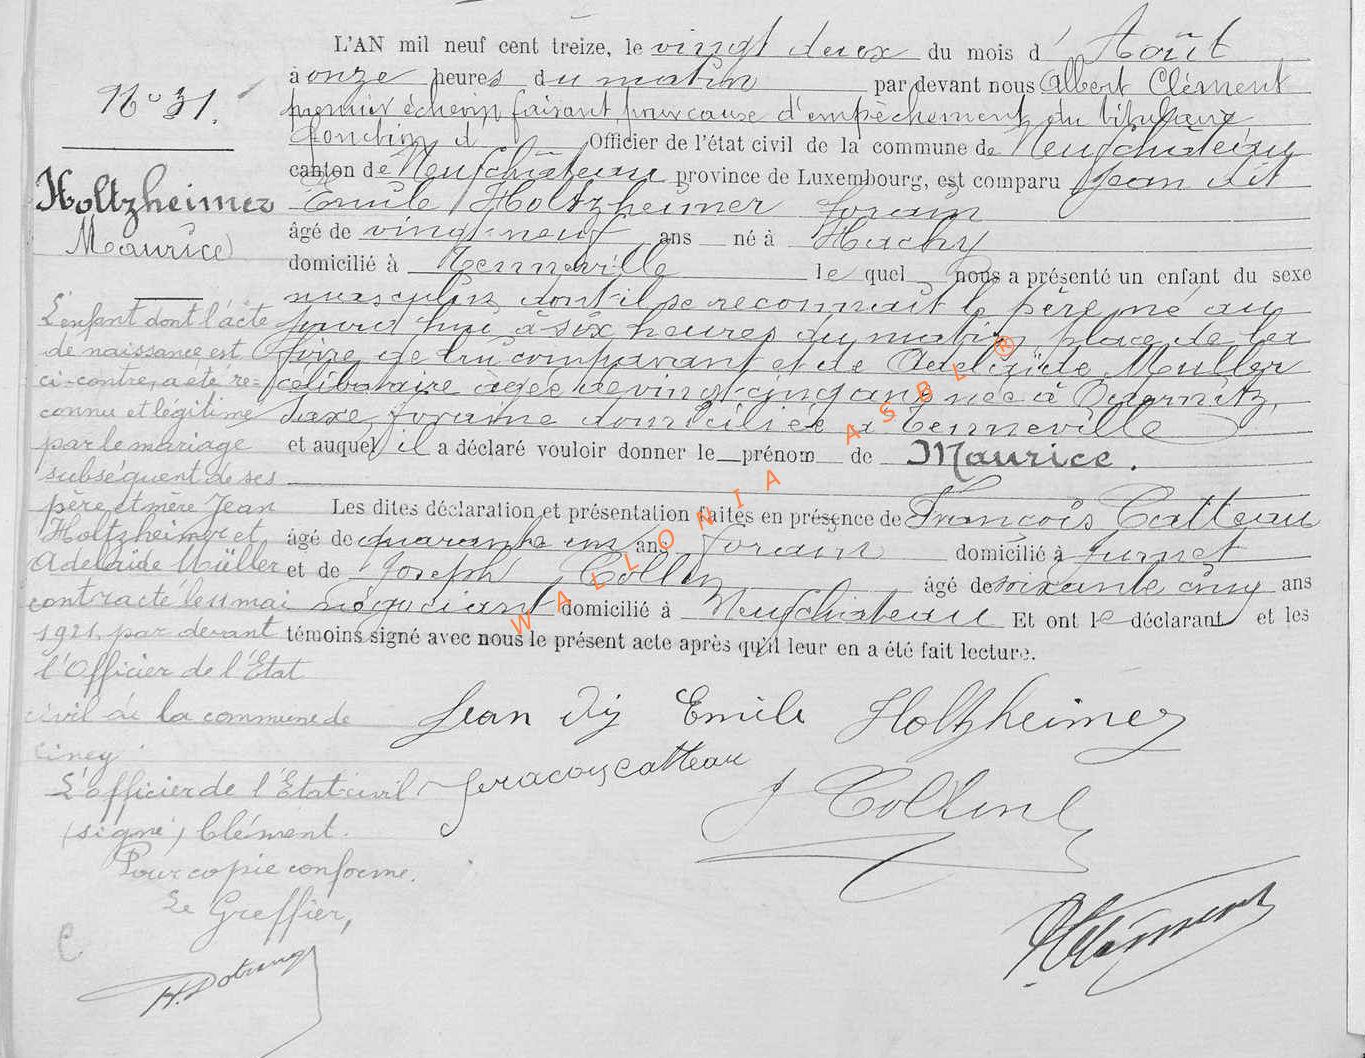 N° 31.
Holtzheimer
Maurice
L'AN mil neuf cent treize, le vingt deux du mois d' Août
à onze heures du matin par devant nous Albert Clément
premier échevin faisant pour cause d'empêchement du titulaire
fonction d' Officier de l'état civil de la commune de Neufchâteau
canton de Neufchâteau province de Luxembourg, est comparu Jean dit
Emile Holtzheimer forain
âgé de vingt-neuf ans né à Hachy
domicilié à Tenneville le quel nous a présenté un enfant du sexe
masculin dont il se reconnait le père, né au
jourd'hui à six heures du matin, place de la
foire, de lui comparant et de Adelaïde Muller
célibataire âgée de vingt-cinq ans née à
Saxe, foraine domiciliée à Tenneville
et auquel il a déclaré vouloir donner le prénom de Maurice.
Les dites déclaration et présentation faites en présence de François Catteau
âgé de quarante un ans forain domicilié à Jumet
et de Joseph Collin âgé de soixante cinq ans
négociant domicilié à Neufchâteau Et ont le déclarant et les
témoins signé avec nous le présent acte après qu'il leur en a été fait lecture.
Jean Emile Holtzheimer
francois catteau
J Collin
AClément
L'enfant dont l'acte
de naissance est
ci-contre, a été re=
connu et légitimé
par le mariage
subséquent de ses
père et mère Jean
Holtzheimer et
Adelaïde Müller
contracté le 11 mai
1921, par devant
l'Officier de l'Etat
civil de la commune de
Ciney
L'officier de l'Etat-civil
(signé) Clément.
Pour copie conforme.
Le Greffier,
WALLONIA ASBL ®